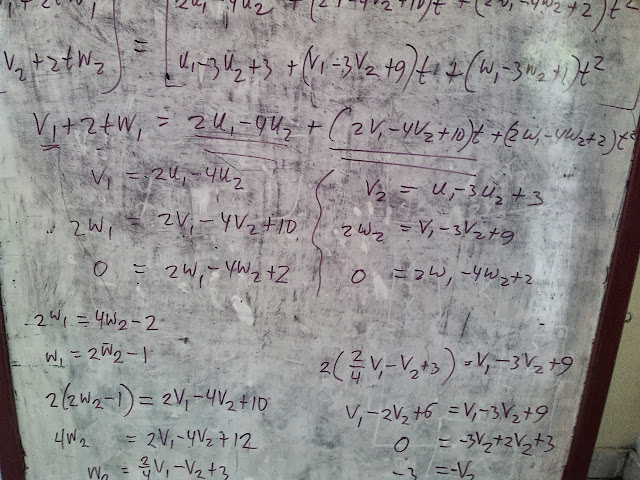 V₂ + 2tW₂ = u₁ - 3u₂ + 3 + (V₁ - 3V₂ + 9)t + (w₁ - 3w₂ + 1)t²
V₁ + 2tW₁ = 2u₁ - 4u₂ + (2V₁ - 4V₂ + 10)t + (2w₁ - 4w₂ + 2)t²
V₁ = 2u₁ - 4u₂
2w₁ = 2V₁ - 4V₂ + 10
0 = 2w₁ - 4w₂ + 2
V₂ = u₁ - 3u₂ + 3
2w₂ = V₁ - 3V₂ + 9
0 = 2w₁ - 4w₂ + 2
2w₁ = 4w₂ - 2
w₁ = 2w₂ - 1
2(2w₂ - 1) = 2V₁ - 4V₂ + 10
4w₂ = 2V₁ - 4V₂ + 12
w₂ = 2/4 V₁ - V₂ + 3
2(2/4 V₁ - V₂ + 3) = V₁ - 3V₂ + 9
V₁ - 2V₂ + 6 = V₁ - 3V₂ + 9
0 = -3V₂ + 2V₂ + 3
-3 = -V₂